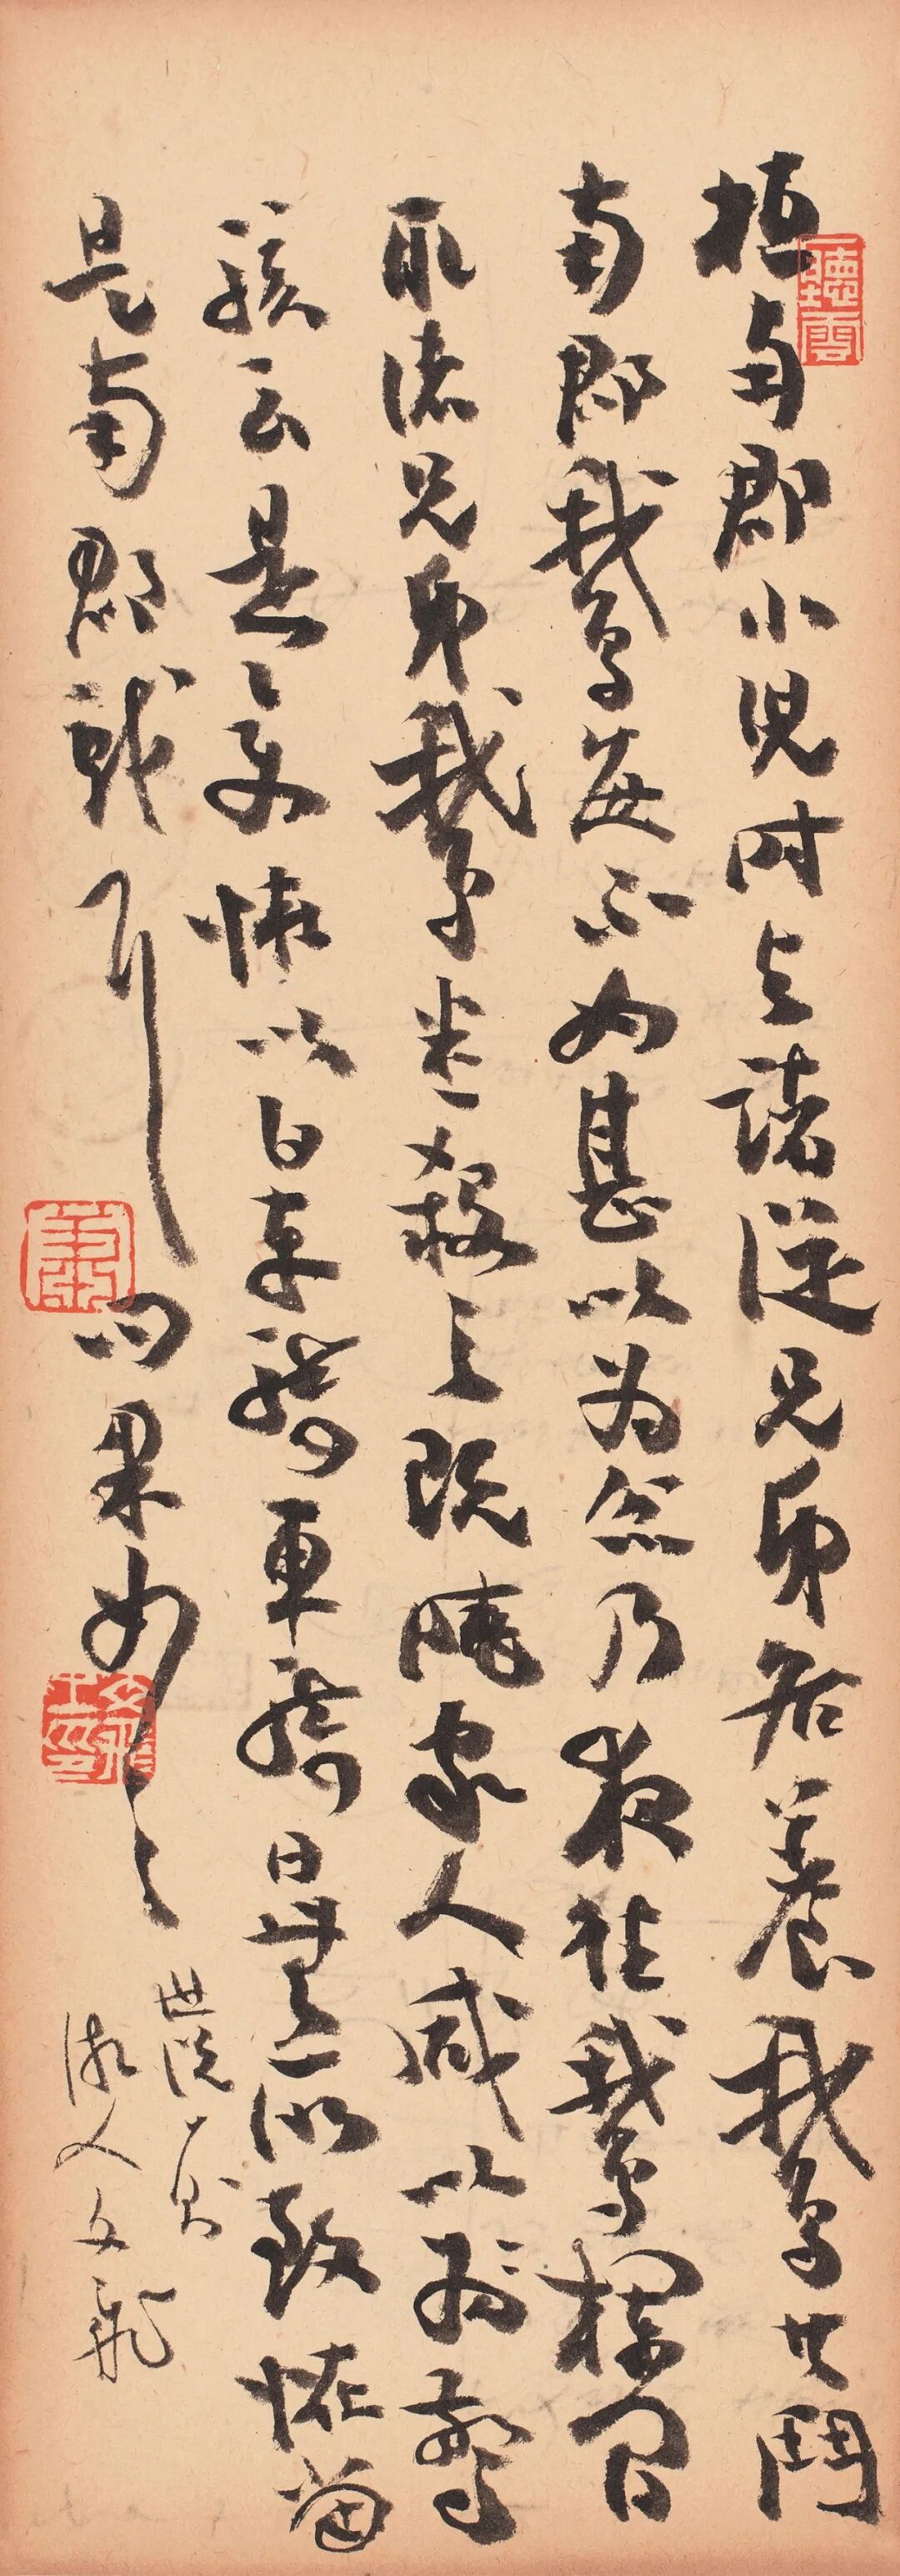 桓南郡小兒時与諸從兄弟各養鵞共鬥
南郡鵞每不如甚以為忿乃夜往鵞欄間
取諸兄弟鵞悉殺之既曉家人咸以為驚
駭云是變怪以白車騎車騎曰無所致怪當
是南郡戲耳問果如之
世說一則
湘人文飛
聽雲